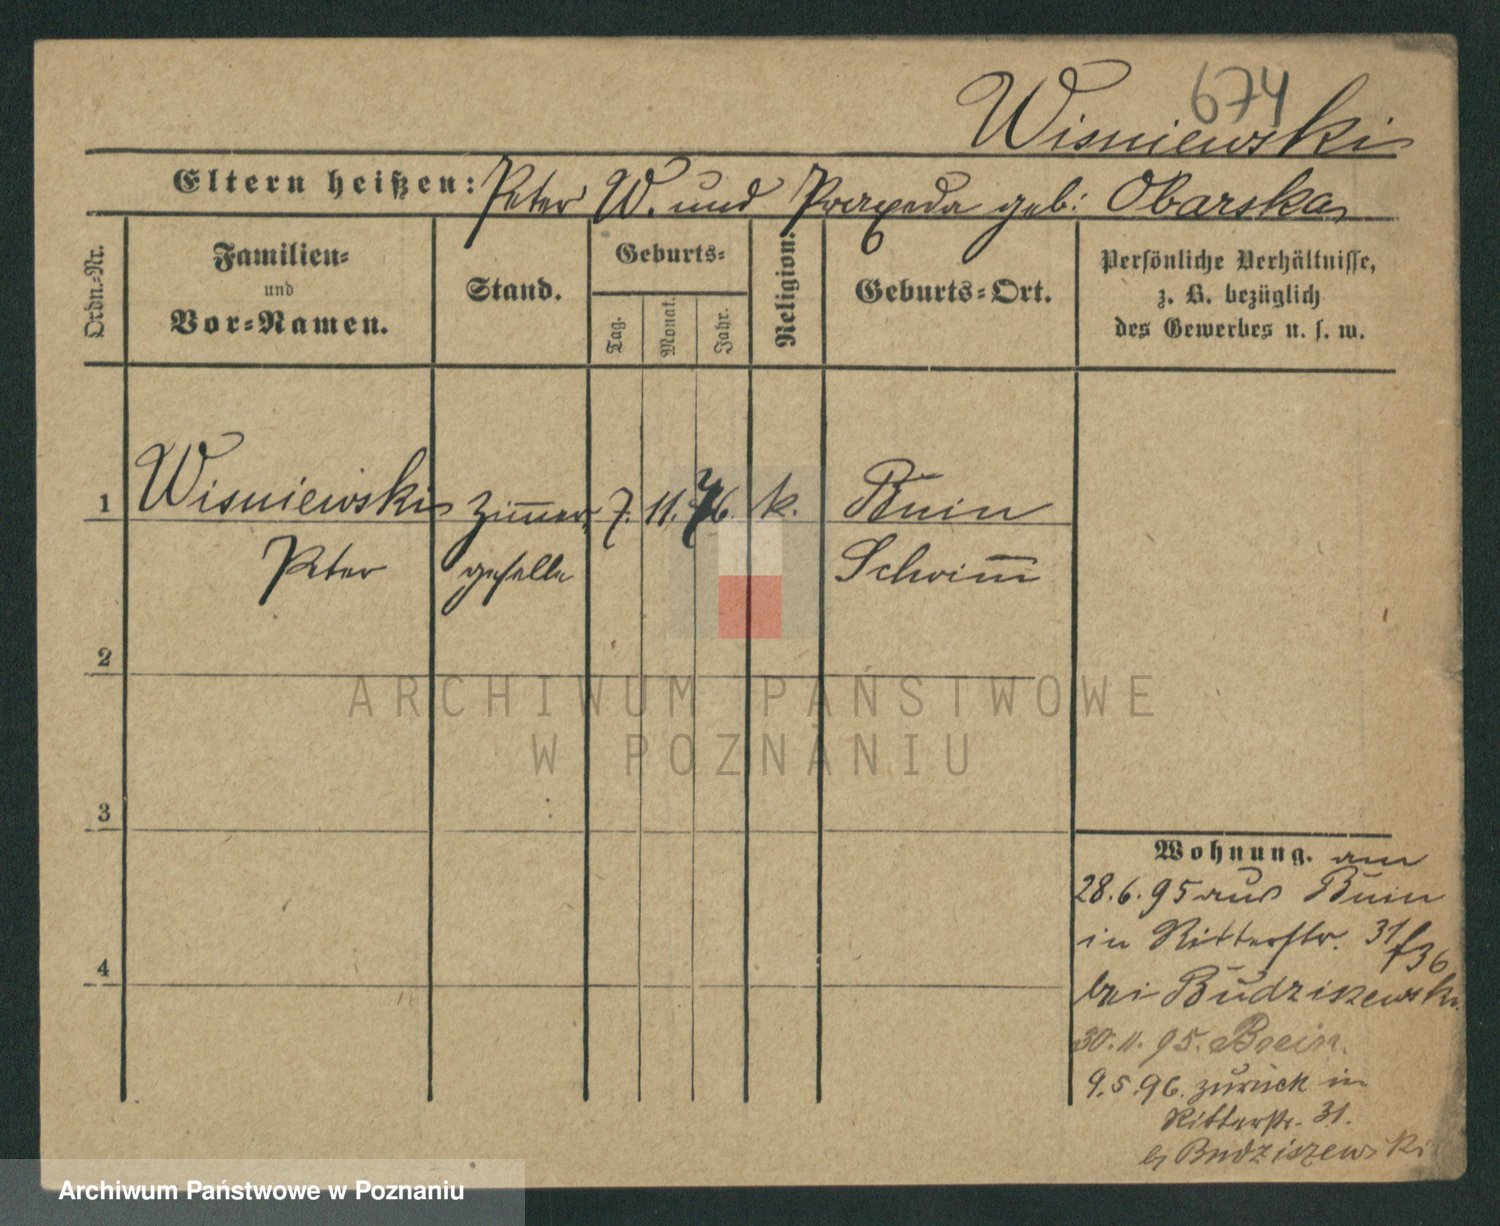 674
Wisniewski
Eltern heißen: Peter W. und Praxeda geb: Obarska
Ordn.-Nr.
Familien- und Vor-Namen.
Stand.
Geburts-
Tag.
Monat.
Jahr.
Religion.
Geburts-Ort.
Persönliche Verhältnisse,
z. B. bezüglich
des Gewerbes u. s. w.
1 Wisniewski Zimmer- 7. 11. 76. k. Buin
Peter geselle Schrimm
2
3
4
ARCHIWUM PAŃSTWOWE
W POZNANIU
Wohnung. am
28.6.95 aus Buin
in Ritterstr. 31/36
bei Budziszewski
30.11.95. Bnin.
9.5.96. zurück in
Ritterstr. 31.
b/ Budziszewski
Archiwum Państwowe w Poznaniu